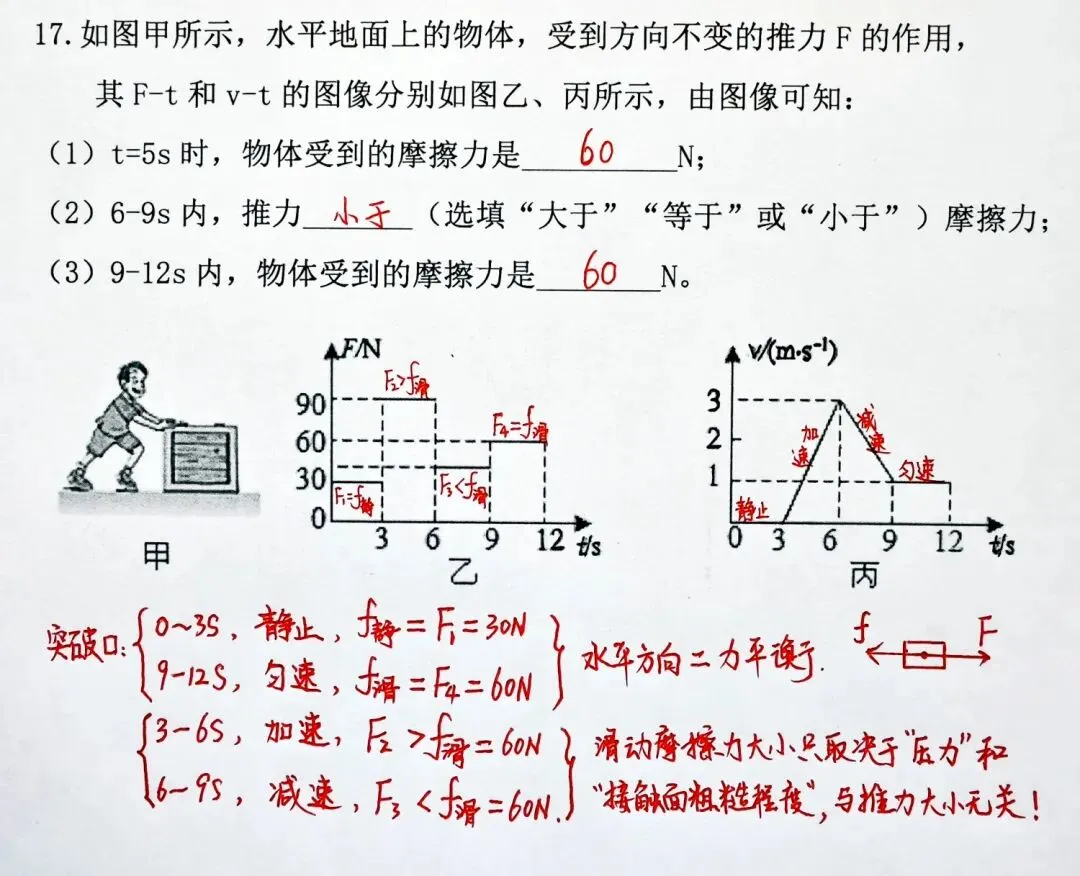 17. 如图甲所示，水平地面上的物体，受到方向不变的推力 F 的作用，
其 F-t 和 v-t 的图像分别如图乙、丙所示，由图像可知：
（1）t=5s 时，物体受到的摩擦力是 60 N；
（2）6-9s 内，推力 小于 （选填“大于”“等于”或“小于”）摩擦力；
（3）9-12s 内，物体受到的摩擦力是 60 N。
甲
F/N
90
60
30
0
3 6 9 12 t/s
F₁=f静
F₂>f滑
F₃<f滑
F₄=f滑
乙
v/(m·s⁻¹)
3
2
1
0 3 6 9 12 t/s
静止
加速
减速
匀速
丙
突破口:
0~3S，静止，f静=F₁=30N
9-12S，匀速，f滑=F₄=60N
水平方向二力平衡.
f F
3-6S，加速，F₂>f滑=60N
6~9S，减速，F₃<f滑=60N.
滑动摩擦力大小只取决于"压力"和
"接触面粗糙程度"，与推力大小无关！